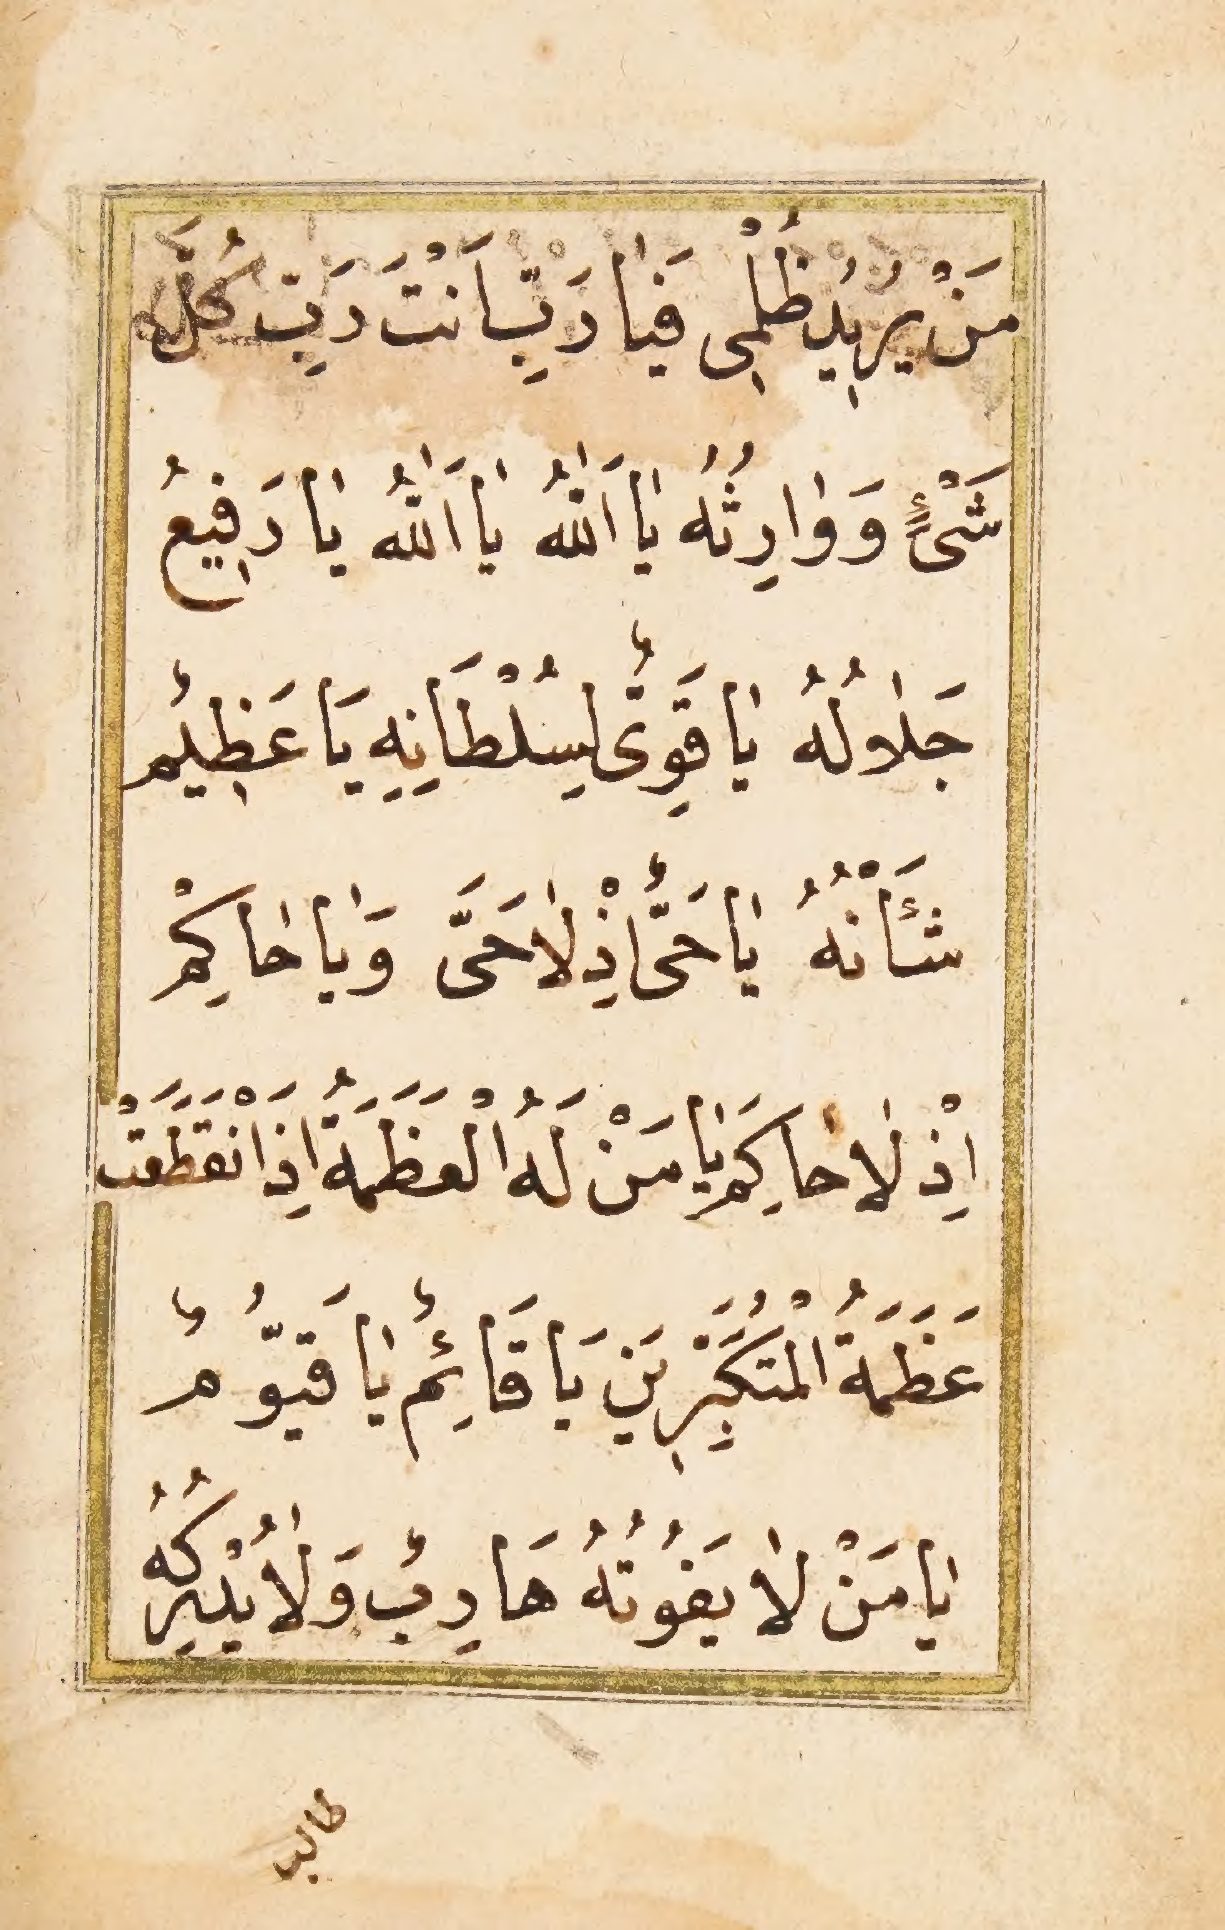 مَنْ يُرٖيدُ ظُلْمٖى فَيٰا رَبِّ اَنْتَ رَبِّ كُلَّ
شَىْءٍ وَوٰارِثُهُ يٰا اَللّٰهُ يٰا اَللّٰهُ يٰا رَفٖيعُ
جَلٰالُهُ يٰا قَوِىٌّ لِسُلْطَانِهِ يَا عَظٖيمٌ
شَأْنُهُ يٰا حَىٌّ اِذْ لٰا حَىَّ وَيٰا حٰاكِمْ
اِذْ لٰا حٰاكِمَ يٰا مَنْ لَهُ الْعَظَمَةُ اِذَا نْقَطَعَتْ
عَظَمَةُ الْمُتَكَبِّرٖينَ يَا قَائِمٌ يٰا قَيُّومٌ
يٰا مَنْ لٰا يَفُوتُهُ هَارِبٌ وَلٰا يُدْرِكُهُ
طالب